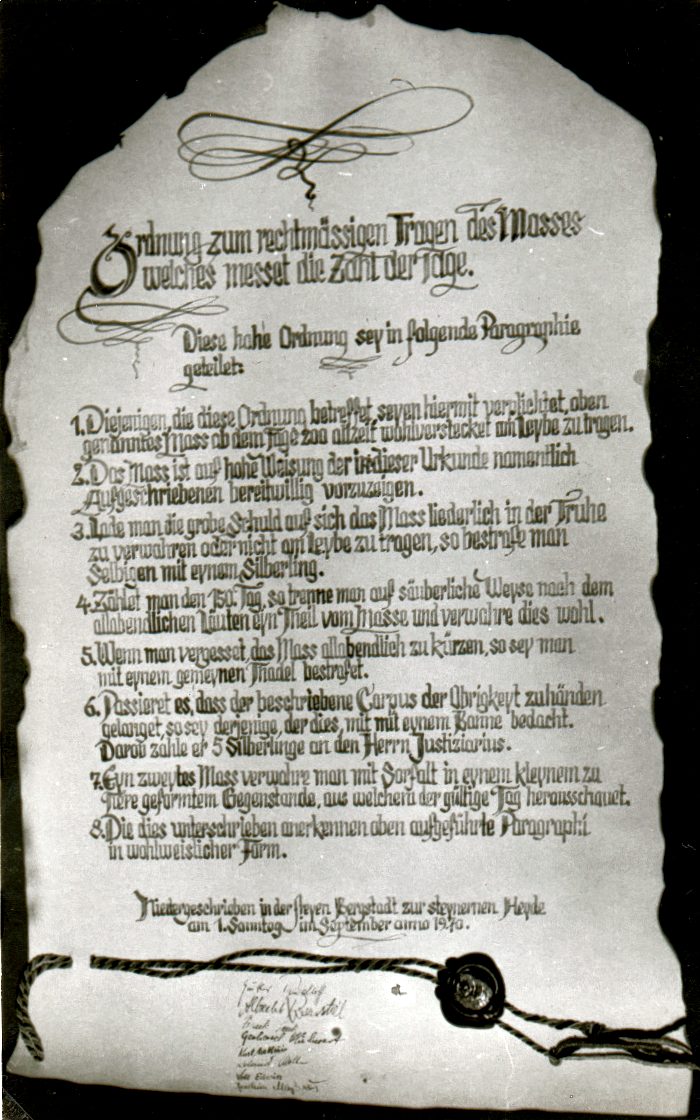 Ordnung zum rechtmässigen Tragen des Masses
welches messet die Zahl der Tage.
Diese hohe Ordnung sey in folgende Paragraphie
geteilet:
1. Diejenigen, die diese Ordnung betreffet, seyen hiermit verplichtet, oben
genanntes Mass ab dem Tage 200 allzeit wohlverstecket am Leybe zu tragen.
2. Das Mass ist auf hohe Weisung der in dieser Urkunde namentlich
Aufgeschriebenen bereitwillig vorzuzeigen.
3. Lade man die grobe Schuld auf sich das Mass liederlich in der Truhe
zu verwahren oder nicht am Leybe zu tragen, so bestrafe man
Selbigen mit eynem Silberling.
4. Zählet man den 150. Tag, so trenne man auf säuberliche Weyse nach dem
allabendlichen Läuten eyn Theil vom Masse und verwahre dies wohl.
5. Wenn man vergesset das Mass allabendlich zu kürzen, so sey man
mit eynem gemeynen Thadel bestrafet.
6. Passieret es, dass der beschriebene Corpus der Obrigkeyt zuhänden
gelanget, so sey derjenige, der dies, mit mit eynem Banne bedacht.
Darob zahle er 5 Silberlinge an den Herrn Justiziarius.
7. Eyn zweytes Mass verwahre man mit Sorfalt in eynem kleynem zu
Tiere geformtem Gegenstande, aus welchem der gültige Tag herausschauet.
8. Die dies unterschrieben anerkennen oben aufgeführte Paragraphi
in wohlweislicher Form.
Niedergeschrieben in der freyen Bergstadt zur steynernen Heyde
am 1. Sonntag im September anno